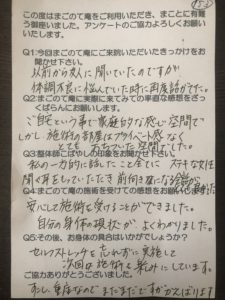 この度はまごのて庵をご利用いただき、まことに有難う御座いました。アンケートのご協力よろしくお願いいたします。
Q1:今回まごのて庵にご来訪いただいたきっかけをお聞かせ下さい。
以前から友人に聞いていたのですが
体調不良に悩んでいた時に再度話がでて。
Q2:まごのて庵に実際に来てみての率直な感想をざっくばらんにお願いします。
ご自宅という事で家庭的な感じ空間で
しかし施術の部屋はプライベート感なく
とてもおちついた空間でした。
Q3:整体師こばやしの印象をお聞かせ下さい。
私の一方的に話したこと全てに ステキな女性
聞く耳をもっていただき前向きになる
Q4:まごのて庵の施術を受けての感想をお願いします。
安心して施術を受けることができました。
自分の身体の現状が よくわかりました。
Q5:その後、お身体の具合はいかがでしょうか？
セルフストレッチを忘れずに実施して
次回の施術を楽しみにしています。
ご協力ありがとうございました！
すこし重度なのでまだまだですががんばります